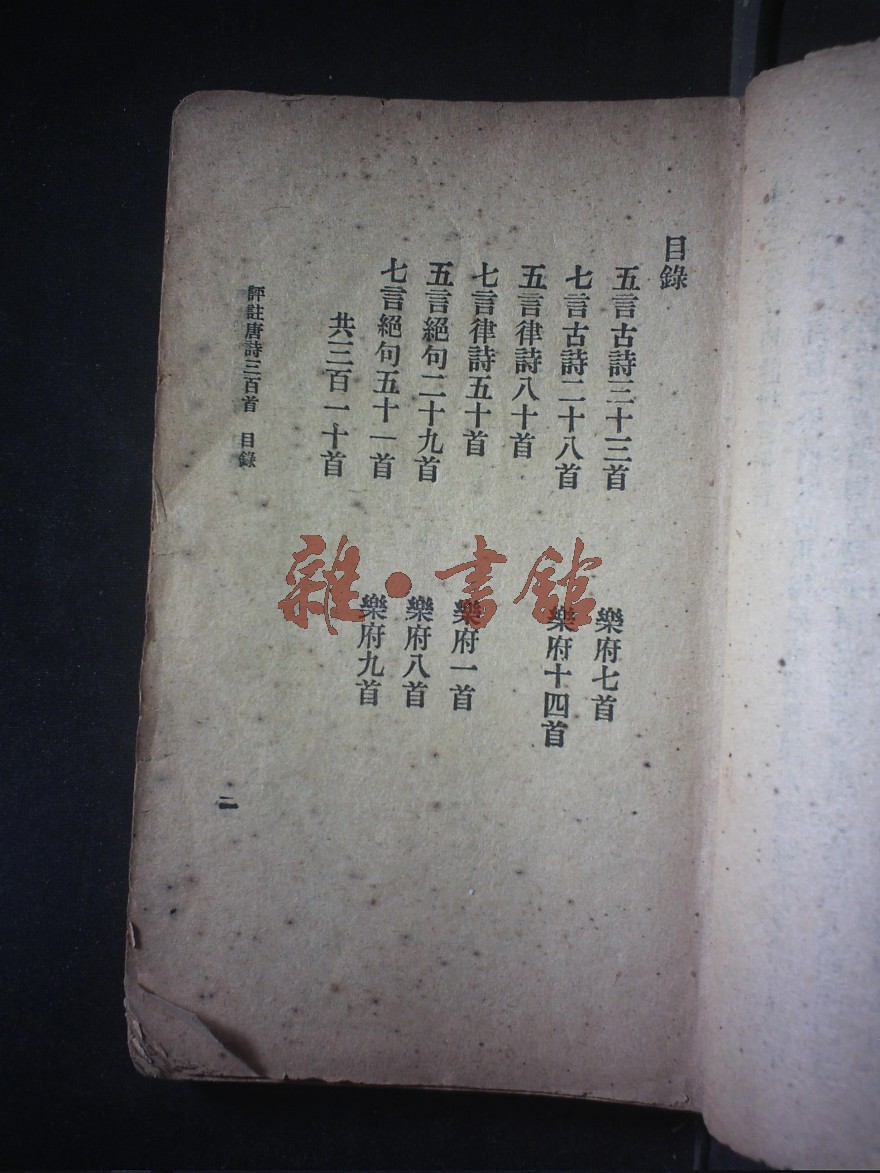 目錄
五言古詩三十三首
樂府七首
七言古詩二十八首
樂府十四首
五言律詩八十首
七言律詩五十首
樂府一首
五言絕句二十九首
樂府八首
七言絕句五十一首
樂府九首
共三百一十首
評註唐詩三百首 目錄
二
雜·書館